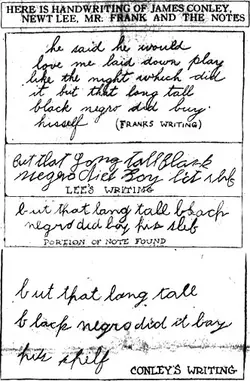 HERE IS HANDWRITING OF JAMES CONLEY,
NEWT LEE, MR. FRANK AND THE NOTES
he said he would
love me laid down play
like the night which did
it but that long tall
black negro did buy
hisself (FRANKS WRITING)
but that long tall black
negro did boy his slef
LEE'S WRITING
but that long tall black
negro did boy his slef
PORTION OF NOTE FOUND
but that long tall
black negro did it bay
his
CONLEY'S WRITING